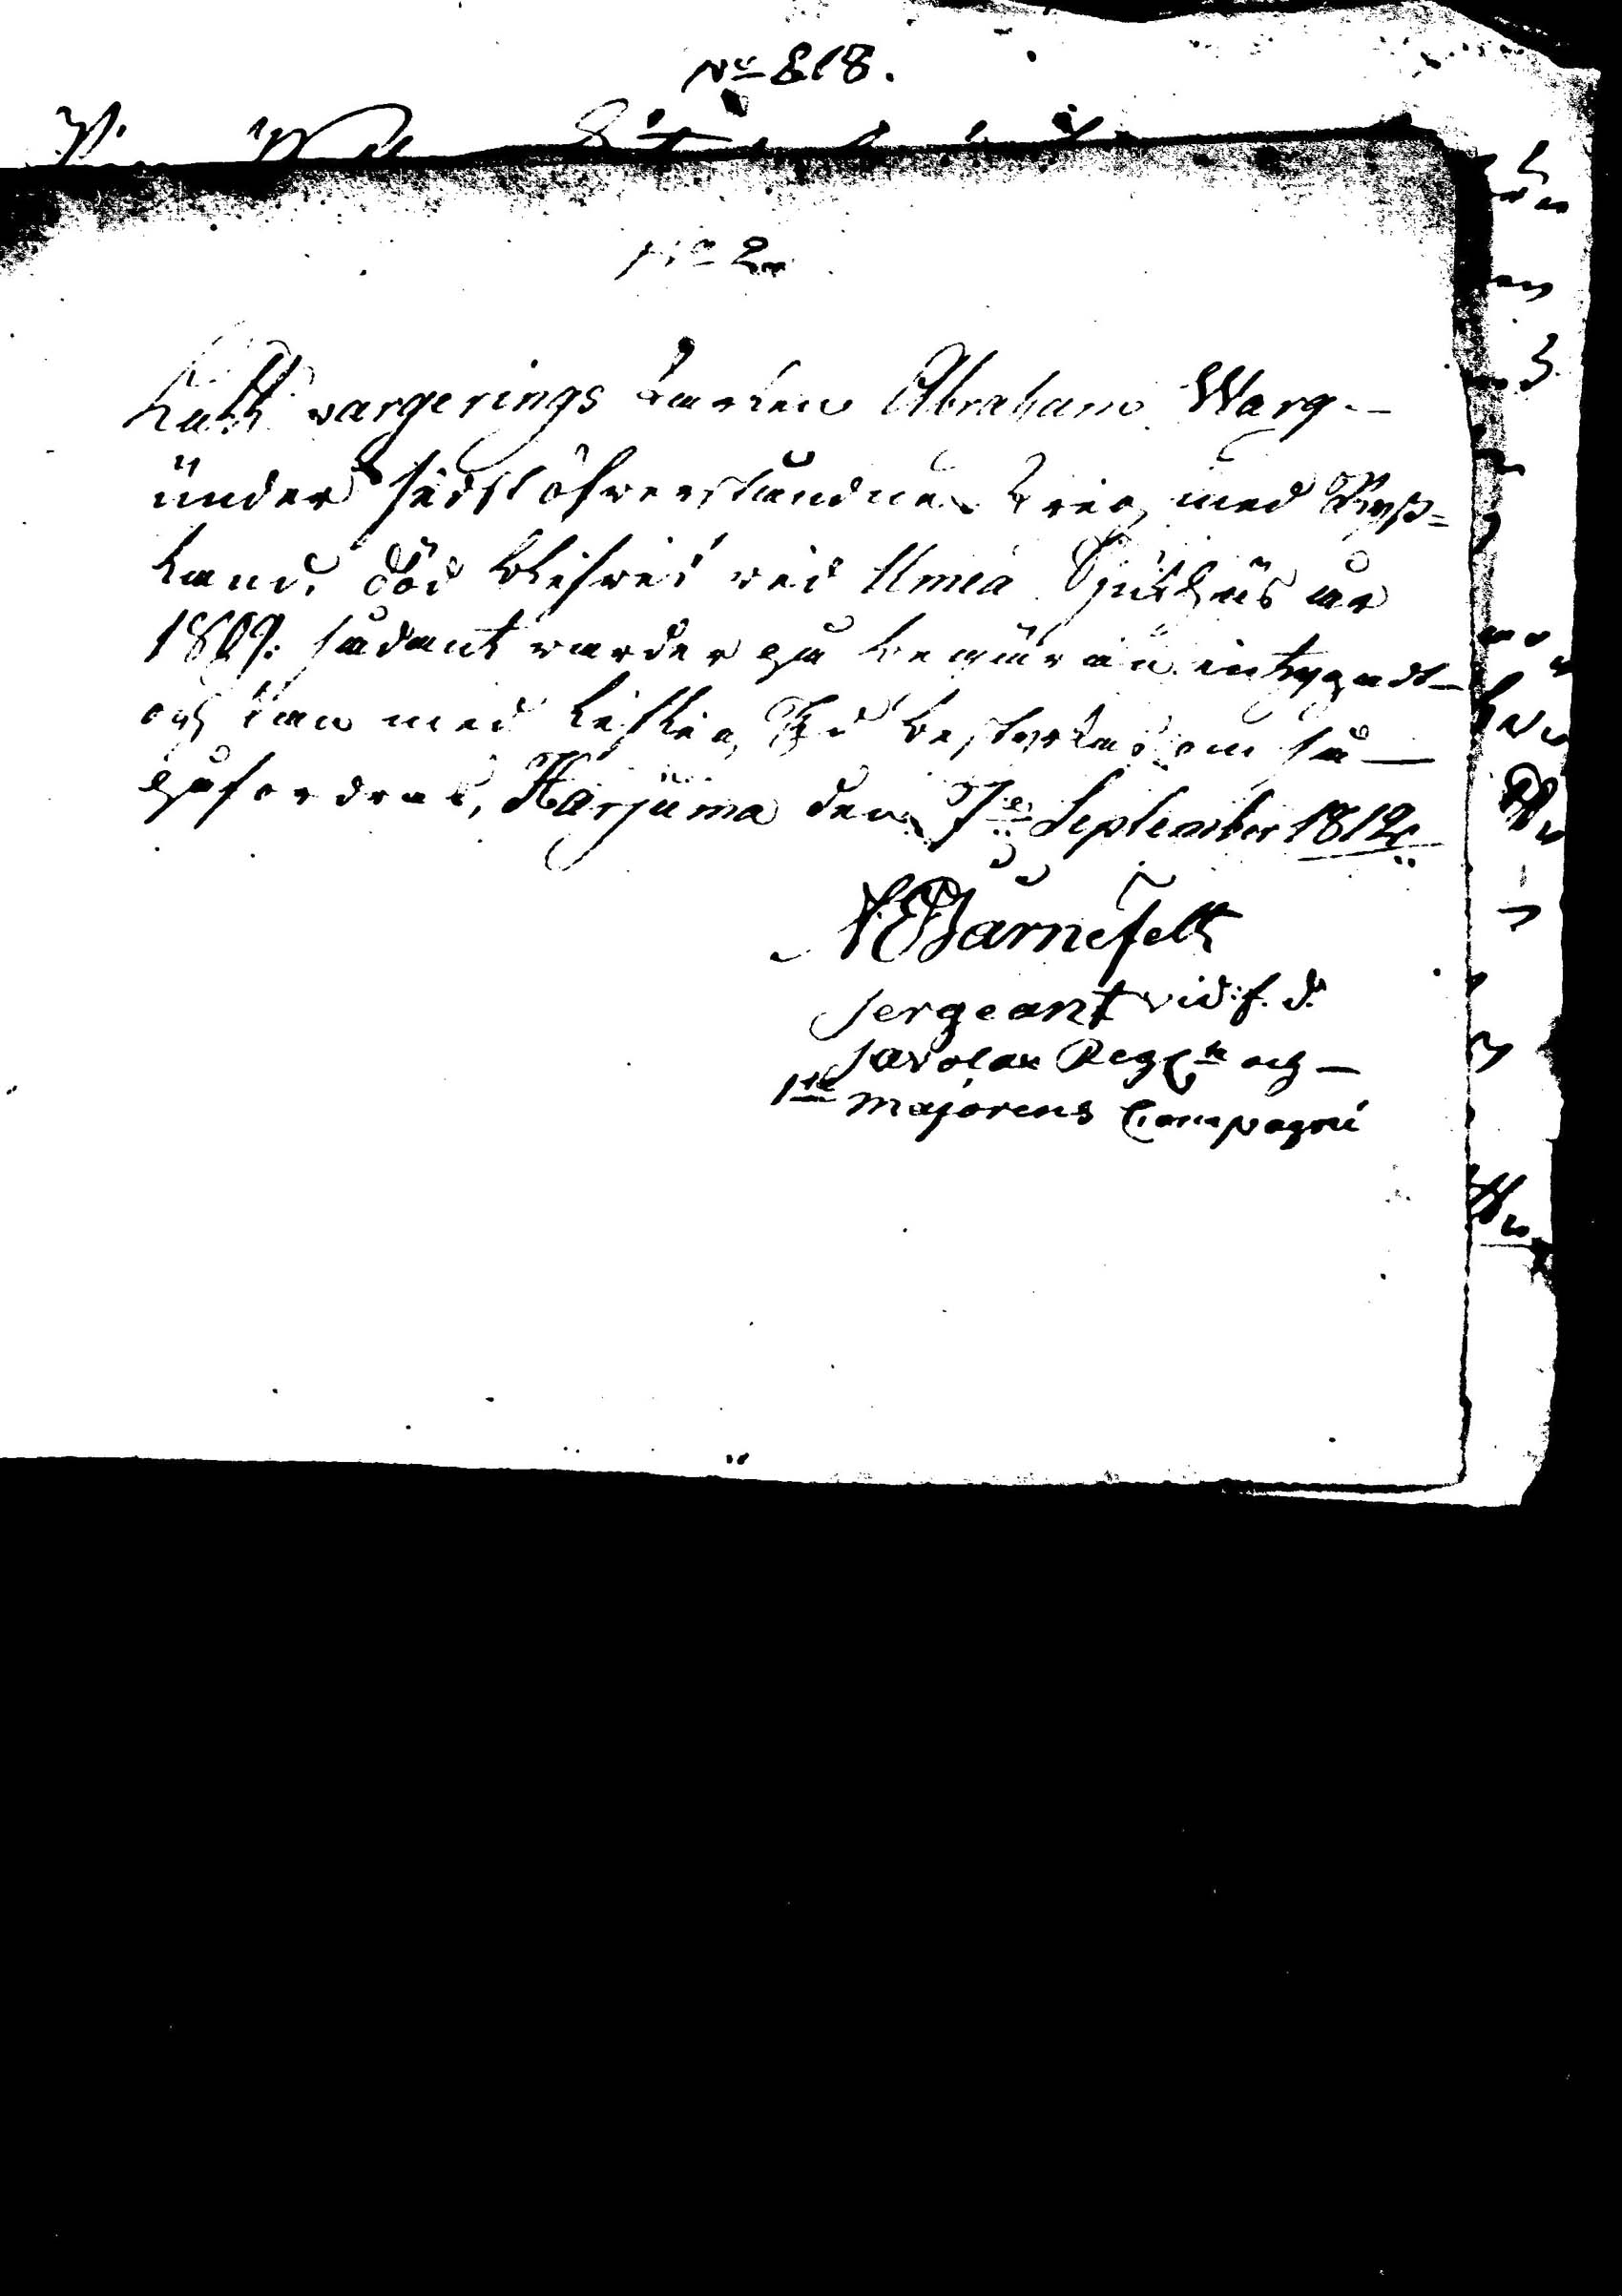 No 818.
No 2
Att vargerings Karlen Abraham Warg
under sidstöfverståndne Krig med Ryss=
land, död blifvit vid Umeå Sjukhus år
1809: sådant warder på begäran intygadt
och kan med liflig Ed bestyrkas om så
påfordras, Harjuma den 7de September 1812
N E Järnefelt
Sergeant vid f. d.
Savolax Regte och
1ste Majorens Compagni